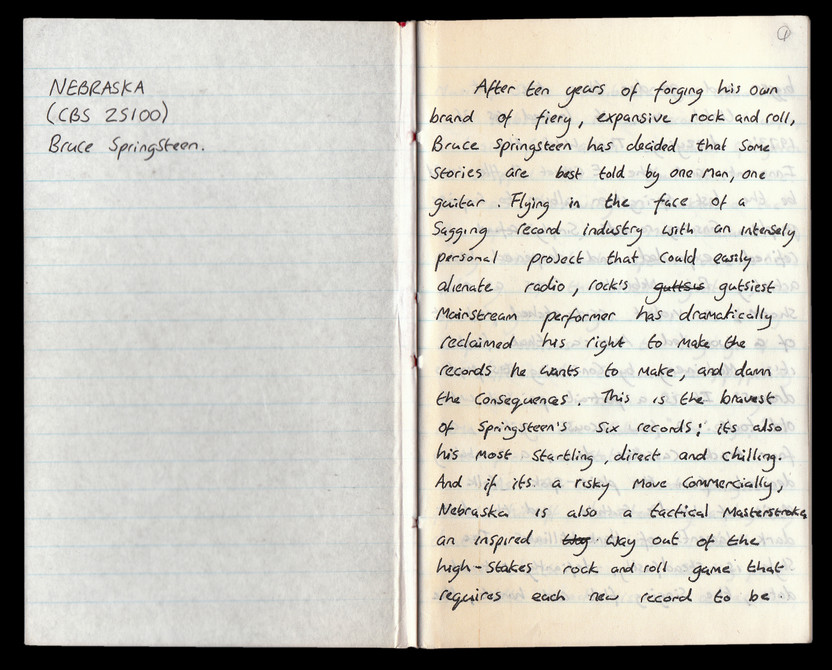 NEBRASKA
(CBS 25100)
Bruce Springsteen.
①
After ten years of forging his own
brand of fiery, expansive rock and roll,
Bruce Springsteen has decided that some
stories are best told by one man, one
guitar. Flying in the face of a
sagging record industry with an intensely
personal project that could easily
alienate radio, rock's gutsiest
mainstream performer has dramatically
reclaimed his right to make the
records he wants to make, and damn
the consequences. This is the bravest
of Springsteen's six records; its also
his most startling, direct and chilling.
And if its a risky move commercially,
Nebraska is also a tactical masterstroke,
an inspired way out of the
high-stakes rock and roll game that
requires each new record to be